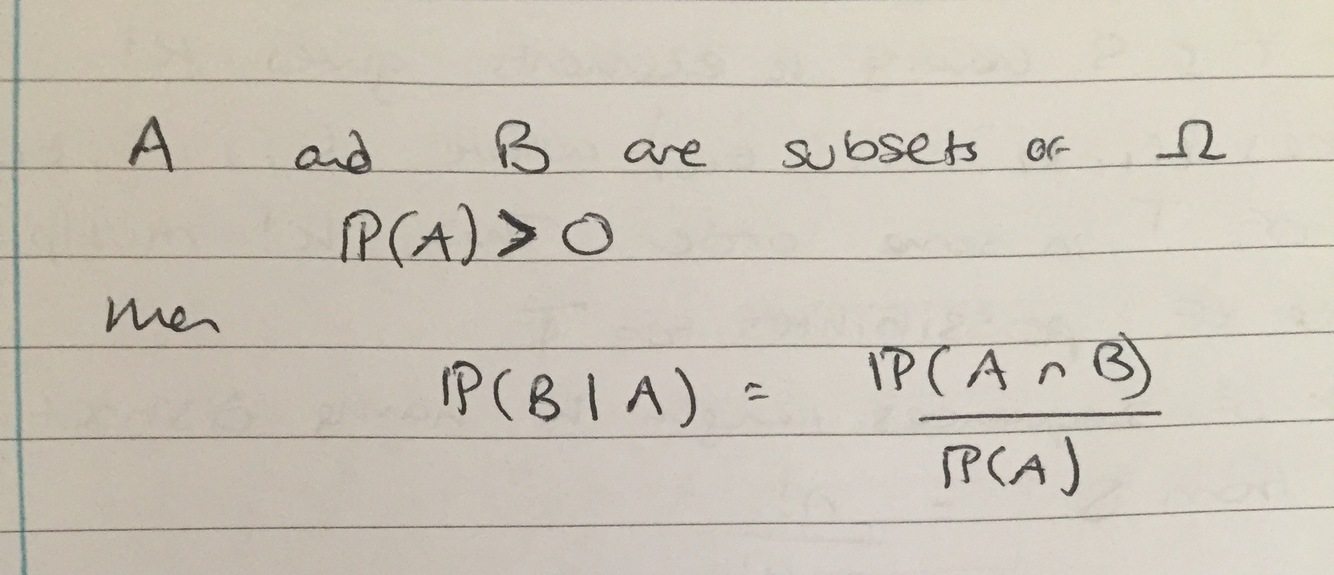 A and B are subsets of Ω
ℙ(A) > 0
then
ℙ(B | A) = ℙ(A ∩ B) / ℙ(A)